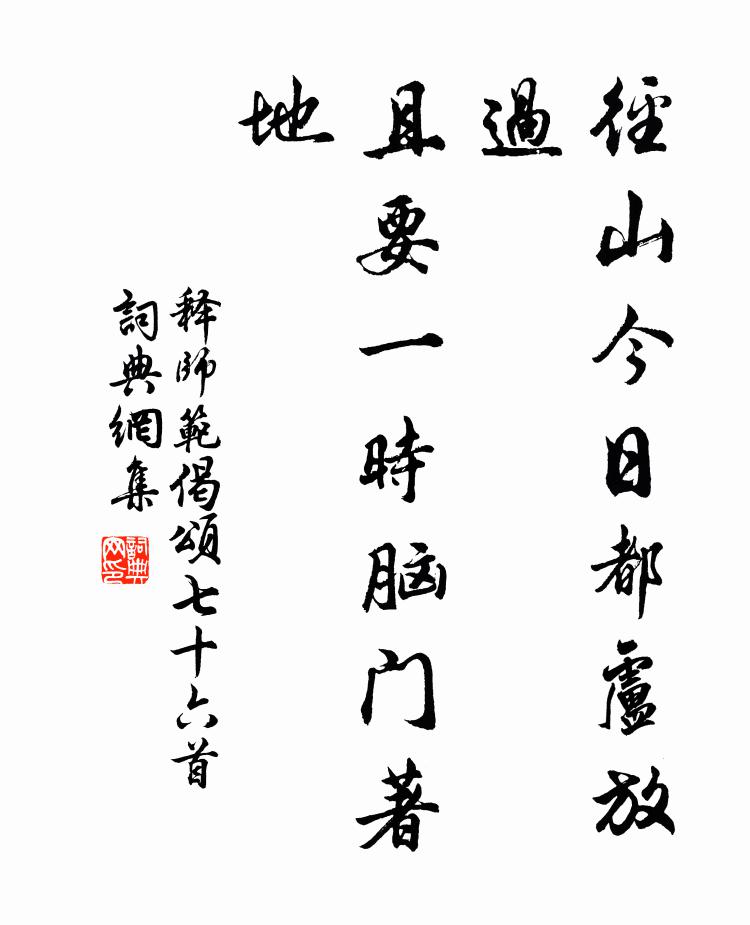 徑山今日都盧放
過
且要一時脑门著
地
释師範偈頌七十六首
詞典網集
詞典
网印